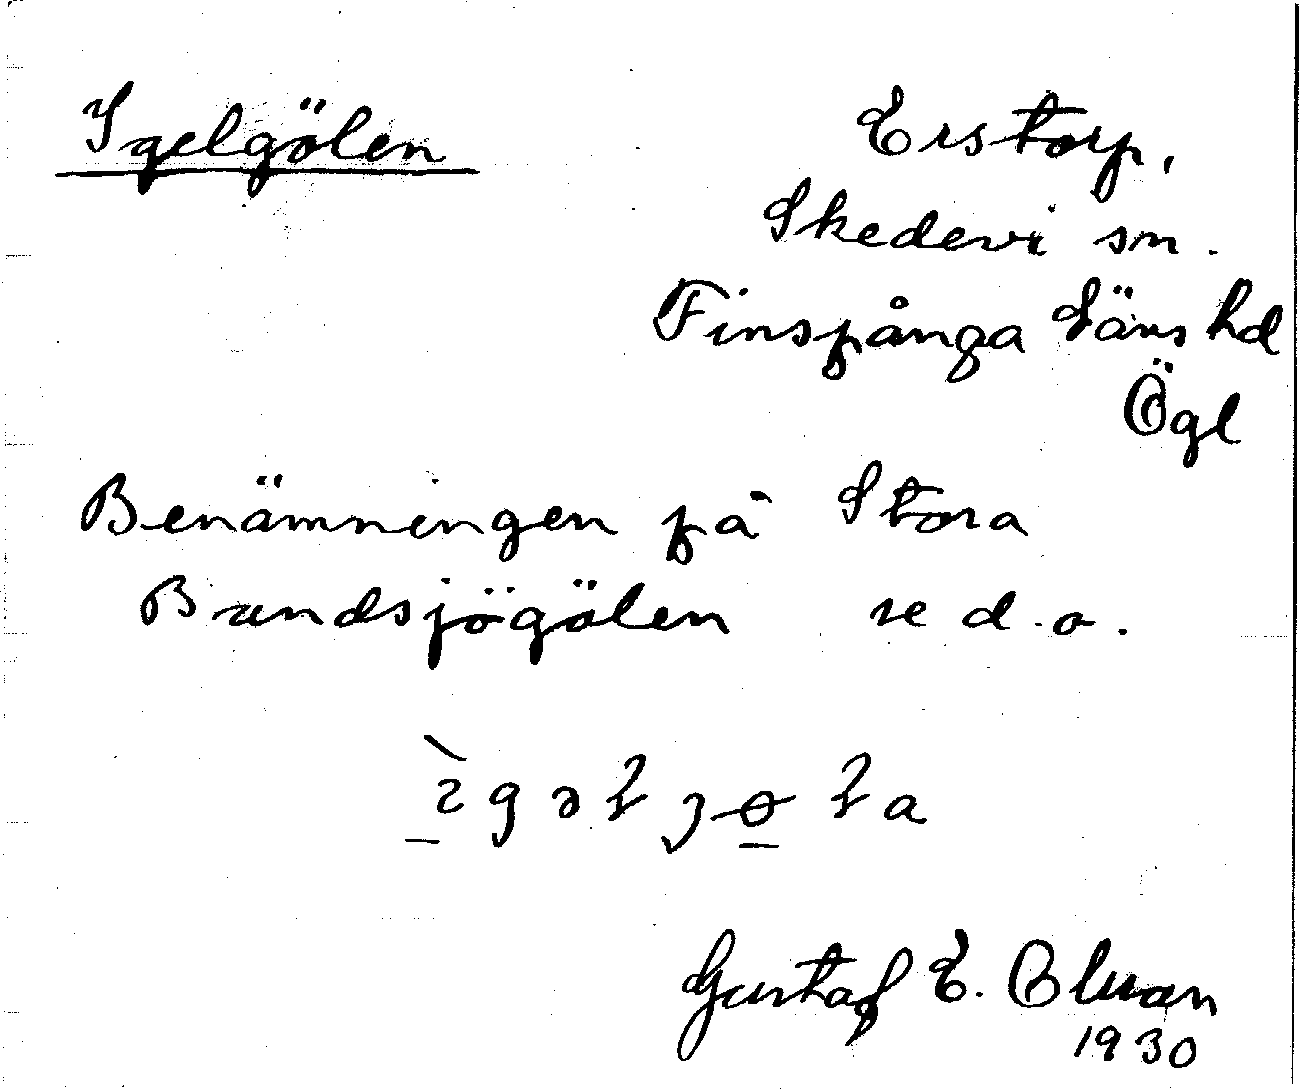 Igelgölen
Erstorp,
Skedevi sn.
Finspånga Läns hd
Ögl
Benämningen på Stora
Bandsjögölen se d.o.
Gustaf E.
1930